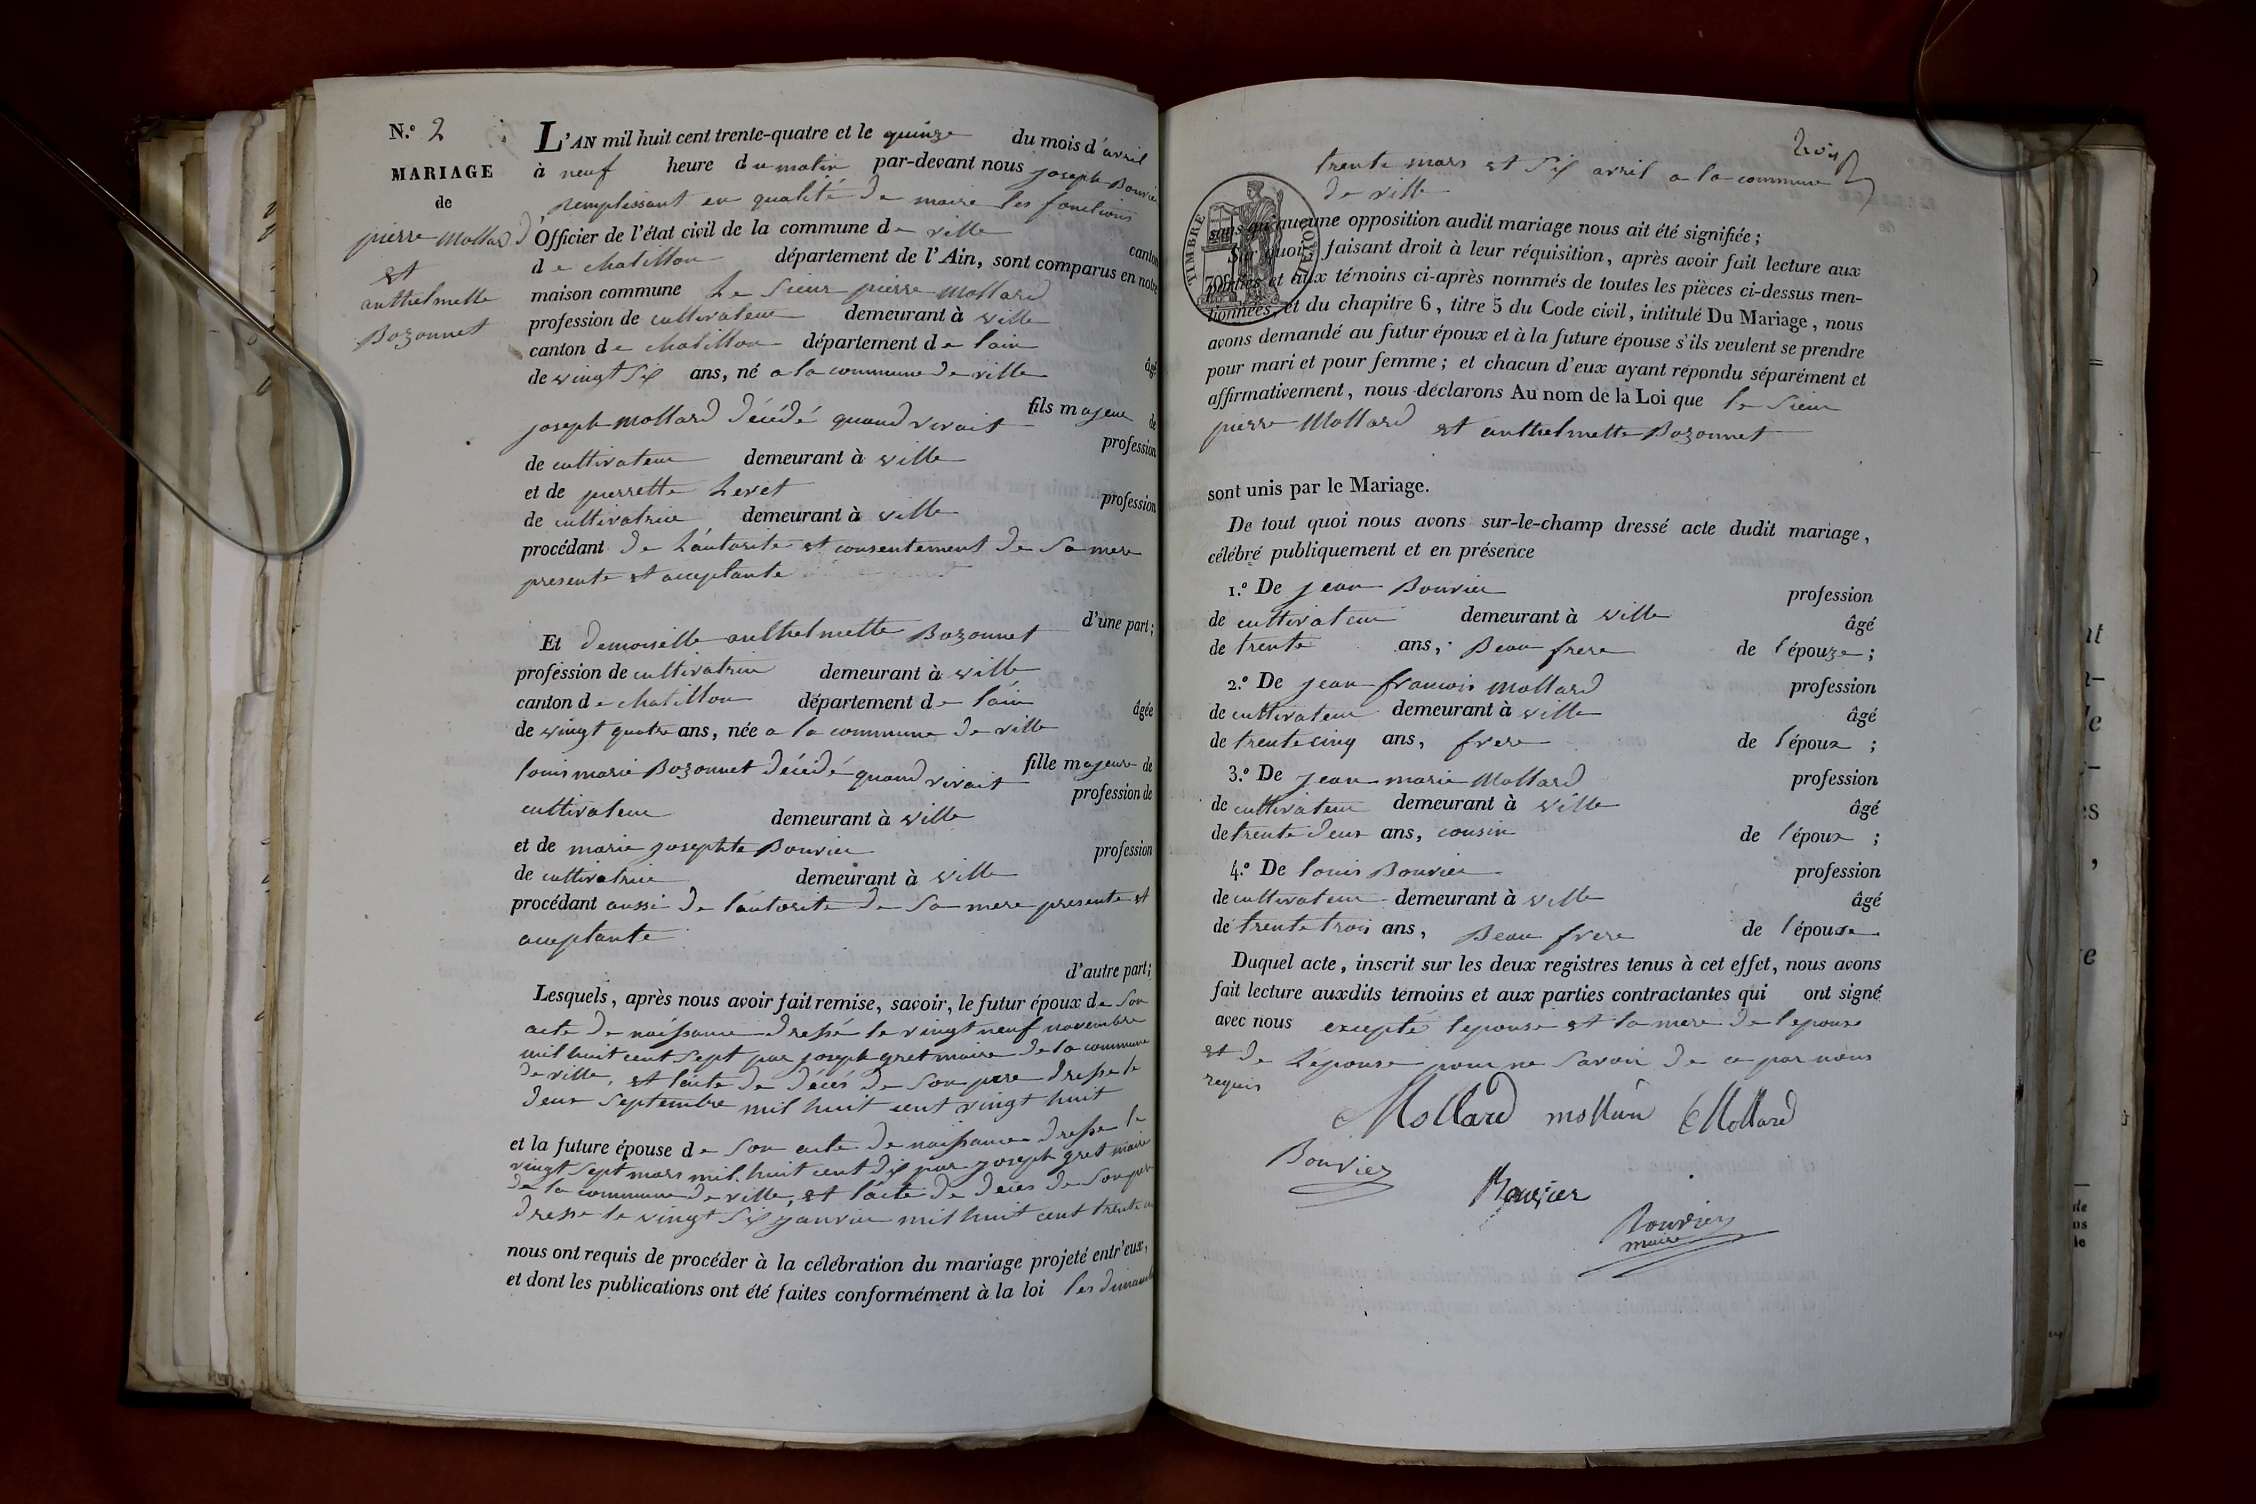 N.° 2
MARIAGE
de
pierre Mollard
et
anthelmette
Bozonnet
L'AN mil huit cent trente-quatre et le quinze du mois d'avril
à neuf heure du matin par-devant nous joseph Bouvier
remplissant en qualité de maire les fonctions
Officier de l'état civil de la commune de ville canton
de chatillon département de l'Ain, sont comparus en notre
maison commune Le Sieur pierre Mollard
profession de cultivateur demeurant à ville
canton de chatillon département de lain âgé
de vingt six ans, né a la commune de ville
fils majeur de
joseph Mollard décédé quand vivait profession
de cultivateur demeurant à ville
et de pierrette Levet profession
de cultivatrice demeurant à ville
procédant de L'autorité et consentement de Sa mere
presente et acceptante
d'une part;
Et demoiselle anthelmette Bozonnet
profession de cultivatrice demeurant à ville
canton de chatillon département de lain âgée
de vingt quatre ans, née a la commune de ville
fille majeure de
louis marie Bozonnet décédé quand vivait profession de
cultivateur demeurant à ville
et de marie josephte Bouvier profession
de cultivatrice demeurant à ville
procédant aussi de l'autorité de Sa mere presente et
acceptante
d'autre part;
Lesquels, après nous avoir fait remise, savoir, le futur époux de Son
acte de naissance dressé le vingt neuf novembre
mil huit cent Sept par joseph gret maire de la commune
de ville, et l'acte de décés de Son pere dresse le
deux Septembre mil huit cent vingt huit
et la future épouse de Son acte de naissance dresse le
vingt Sept mars mil huit cent dix par joseph gret maire
de la commune de ville, et l'acte de deces de Son pere
dresse le vingt Six janvier mil huit cent trente
nous ont requis de procéder à la célébration du mariage projeté entr'eux,
et dont les publications ont été faites conformément à la loi les dimanche
trois
trente mars et Six avril a la commune
de ville
TIMBRE ROYAL
70
sans qu'aucune opposition audit mariage nous ait été signifiée;
Sur quoi, faisant droit à leur réquisition, après avoir fait lecture aux
parties et aux témoins ci-après nommés de toutes les pièces ci-dessus men-
tionnées, et du chapitre 6, titre 5 du Code civil, intitulé Du Mariage, nous
avons demandé au futur époux et à la future épouse s'ils veulent se prendre
pour mari et pour femme; et chacun d'eux ayant répondu séparément et
affirmativement, nous déclarons Au nom de la Loi que le Sieur
pierre Mollard et anthelmette Bozonnet
sont unis par le Mariage.
De tout quoi nous avons sur-le-champ dressé acte dudit mariage,
célébré publiquement et en présence
1.° De jean Bouvier profession
de cultivateur demeurant à ville âgé
de trente ans, Beau frere de l'épouze;
2.° De jean francois Mollard profession
de cultivateur demeurant à ville âgé
de trente cinq ans, frere de l'époux;
3.° De jean marie Mollard profession
de cultivateur demeurant à ville âgé
de trente deux ans, cousin de l'époux;
4.° De louis Bouvier profession
de cultivateur demeurant à ville âgé
de trente trois ans, Beau frere de l'épouse
Duquel acte, inscrit sur les deux registres tenus à cet effet, nous avons
fait lecture auxdits témoins et aux parties contractantes qui ont signé
avec nous excepté lepouse et la mere de lepoux
et de L'épouse pour ne Savoir de ce par nous
requis
Mollard Mollard
Bouvier
Bouvier
Bouvier
maire